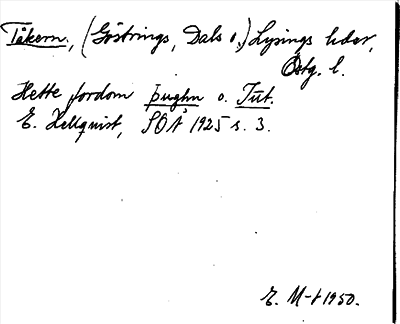 Tåkern, (Göstrings, Dals o.) Lysings hder,
Östg. l.
Hette fordom þughn o. Tūt.
E. Hellquist, SOÅ 1925 s. 3.
E. M-t 1950.